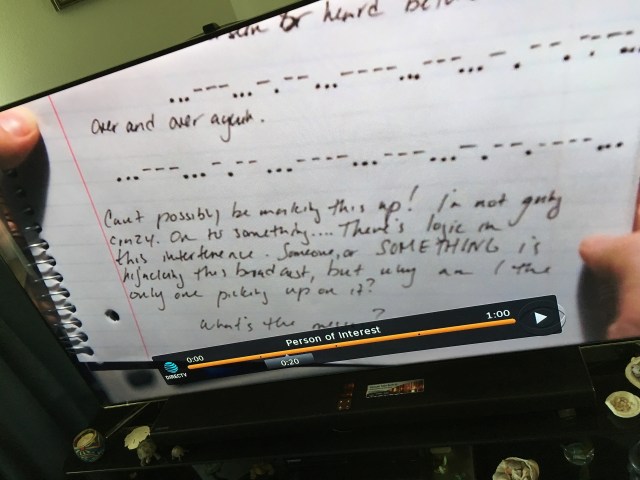 or heard
Over and over again.
Can't possibly be making this up! I'm not going
crazy. On to something.... There's logic in
this interference. Someone, or SOMETHING is
hijacking this broadcast, but why am I the
only one picking up on it?
What's the
Person of Interest
0:00
1:00
0:20
DIRECTV